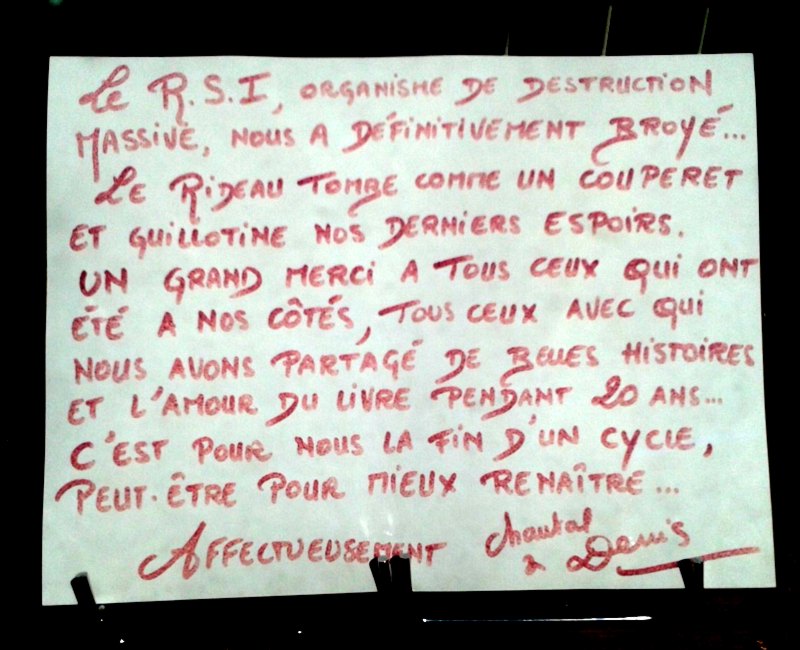 Le R.S.I, ORGANISME DE DESTRUCTION
MASSIVE, NOUS A DÉFINITIVEMENT BROYÉ...
Le RIDEAU TOMBE COMME UN COUPERET
ET GUILLOTINE NOS DERNIERS ESPOIRS.
UN GRAND MERCI A TOUS CEUX QUI ONT
ÉTÉ A NOS CÔTÉS, TOUS CEUX AVEC QUI
NOUS AVONS PARTAGÉ DE BELLES HISTOIRES
ET L'AMOUR DU LIVRE PENDANT 20 ANS...
C'EST POUR NOUS LA FIN D'UN CYCLE,
PEUT-ÊTRE POUR MIEUX RENAÎTRE...
AFFECTUEUSEMENT Chantal
& Denis